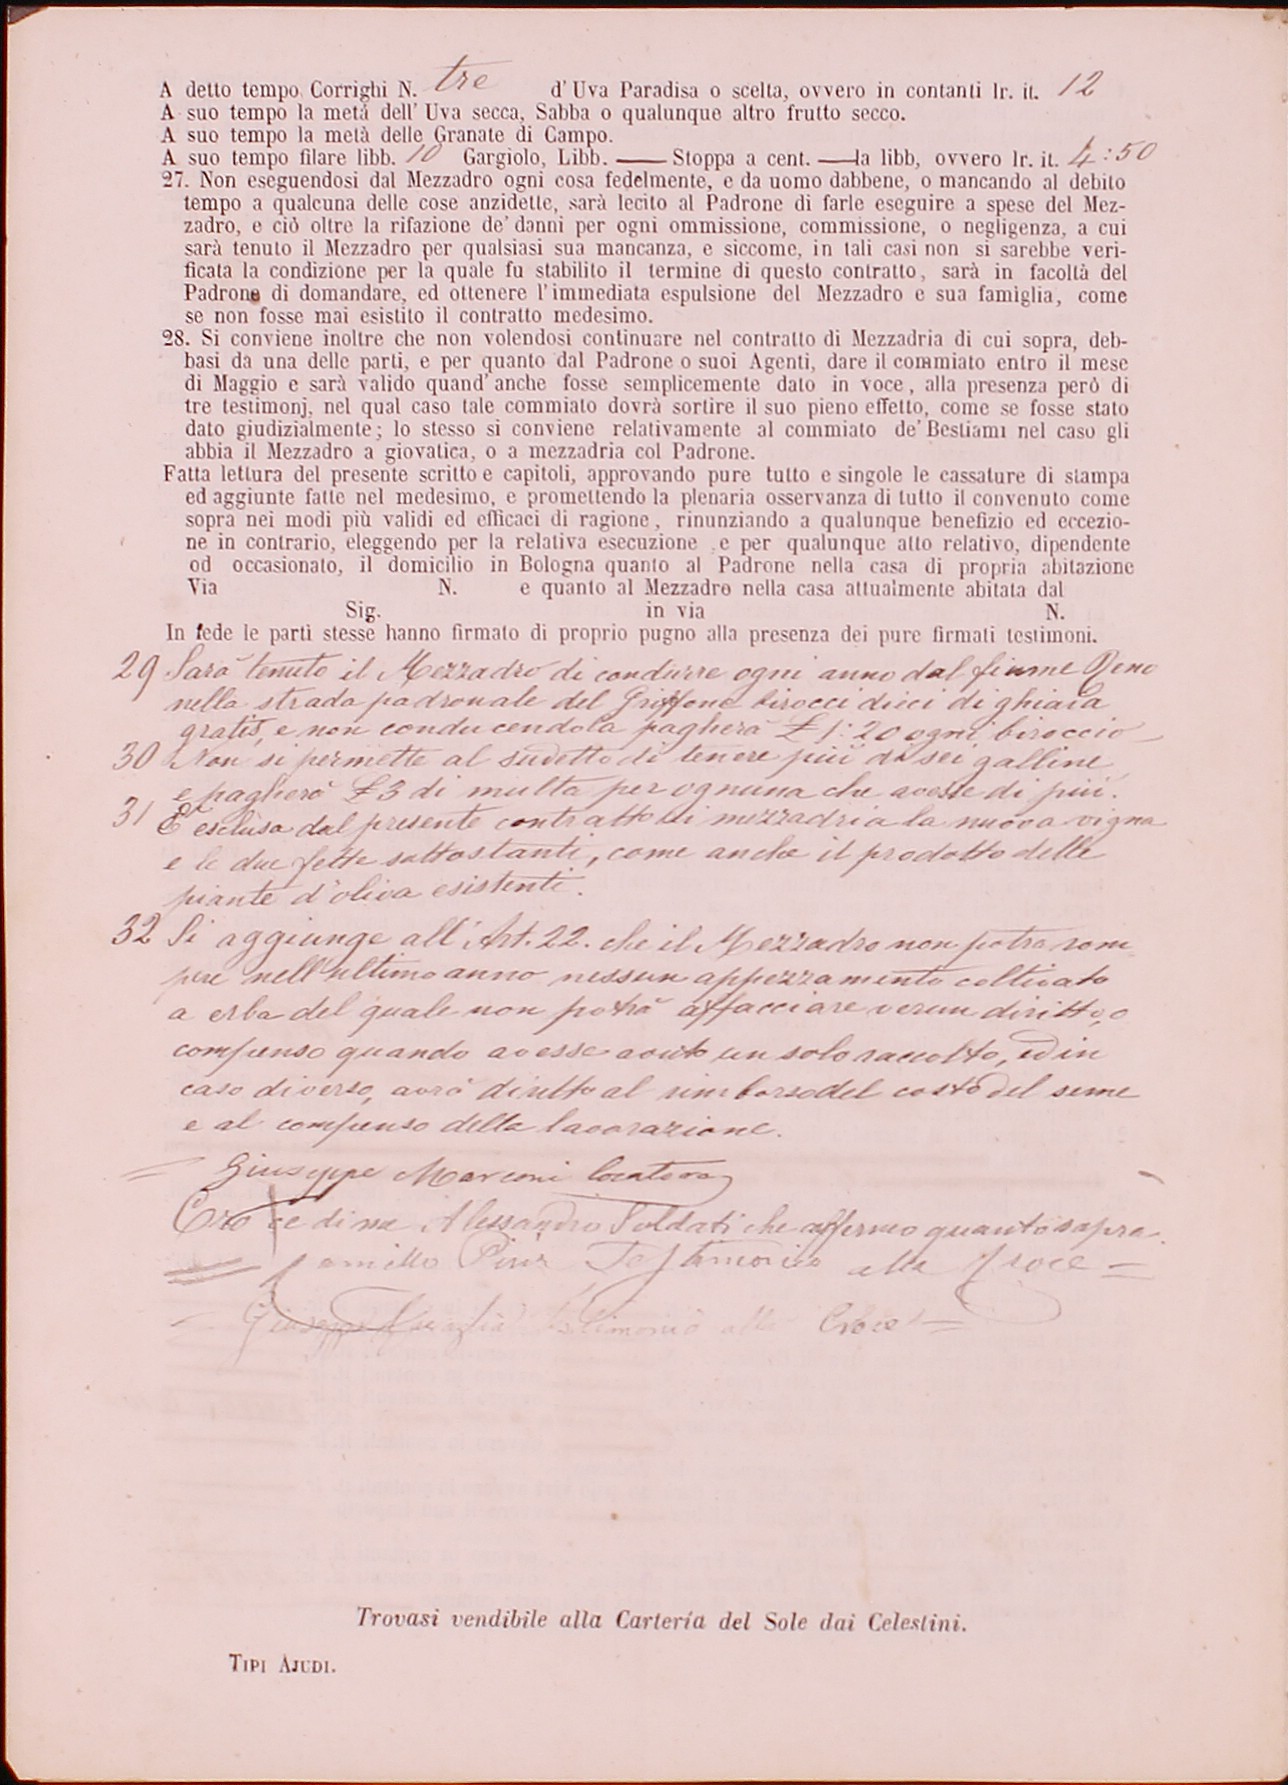 A detto tempo Corrighi N. tre d'Uva Paradisa o scelta, ovvero in contanti lr. it. 12
A suo tempo la metà dell'Uva secca, Sabba o qualunque altro frutto secco.
A suo tempo la metà delle Granate di Campo.
A suo tempo filare libb. 10 Gargiolo, Libb. — Stoppa a cent. — la libb, ovvero lr. it. 4:50
27. Non eseguendosi dal Mezzadro ogni cosa fedelmente, e da uomo dabbene, o mancando al debito
tempo a qualcuna delle cose anzidette, sarà lecito al Padrone di farle eseguire a spese del Mez-
zadro, e ciò oltre la rifazione de' danni per ogni ommissione, commissione, o negligenza, a cui
sarà tenuto il Mezzadro per qualsiasi sua mancanza, e siccome, in tali casi non si sarebbe veri-
ficata la condizione per la quale fu stabilito il termine di questo contratto, sarà in facoltà del
Padrone di domandare, ed ottenere l'immediata espulsione del Mezzadro e sua famiglia, come
se non fosse mai esistito il contratto medesimo.
28. Si conviene inoltre che non volendosi continuare nel contratto di Mezzadria di cui sopra, deb-
basi da una delle parti, e per quanto dal Padrone o suoi Agenti, dare il commiato entro il mese
di Maggio e sarà valido quand'anche fosse semplicemente dato in voce, alla presenza però di
tre testimonj, nel qual caso tale commiato dovrà sortire il suo pieno effetto, come se fosse stato
dato giudizialmente; lo stesso si conviene relativamente al commiato de' Bestiami nel caso gli
abbia il Mezzadro a giovatica, o a mezzadria col Padrone.
Fatta lettura del presente scritto e capitoli, approvando pure tutto e singole le cassature di stampa
ed aggiunte fatte nel medesimo, e promettendo la plenaria osservanza di tutto il convenuto come
sopra nei modi più validi ed efficaci di ragione, rinunziando a qualunque benefizio ed eccezio-
ne in contrario, eleggendo per la relativa esecuzione e per qualunque atto relativo, dipendente
od occasionato, il domicilio in Bologna quanto al Padrone nella casa di propria abitazione
Via N. e quanto al Mezzadro nella casa attualmente abitata dal
Sig. in via N.
In fede le parti stesse hanno firmato di proprio pugno alla presenza dei pure firmati testimoni.
29 Sarà tenuto il Mezzadro di condurre ogni anno dal fiume Reno
nella strada padronale del Griffone birocci dieci di ghiaia
gratis, e non conducendola pagherà £ 1:20 ogni biroccio
30 Non si permette al sudetto di tenere più di sei galline
e pagherà £3 di multa per ognuna che avesse di più.
31 E' esclusa dal presente contratto di mezzadria la nuova vigna
e le due fette sottostanti, come anche il prodotto delle
piante d'oliva esistenti.
32 Si aggiunge all'Art. 22. che il Mezzadro non potrà rom
pere nell'ultimo anno nessun appezzamento coltivato
a erba del quale non potrà affacciare verun diritto, o
compenso quando avesse avuto un solo raccolto, ed in
caso diverso, avrà diritto al rimborso del costo del seme
e al compenso della lavorazione.
Giuseppe Marconi locatore
Cro ce di me Alessandro Soldati che affermo quanto sopra.
Camillo Testimonio alla Croce
Giuseppe testimonio alla Croce
Trovasi vendibile alla Cartería del Sole dai Celestini.
TIPI AJUDI.